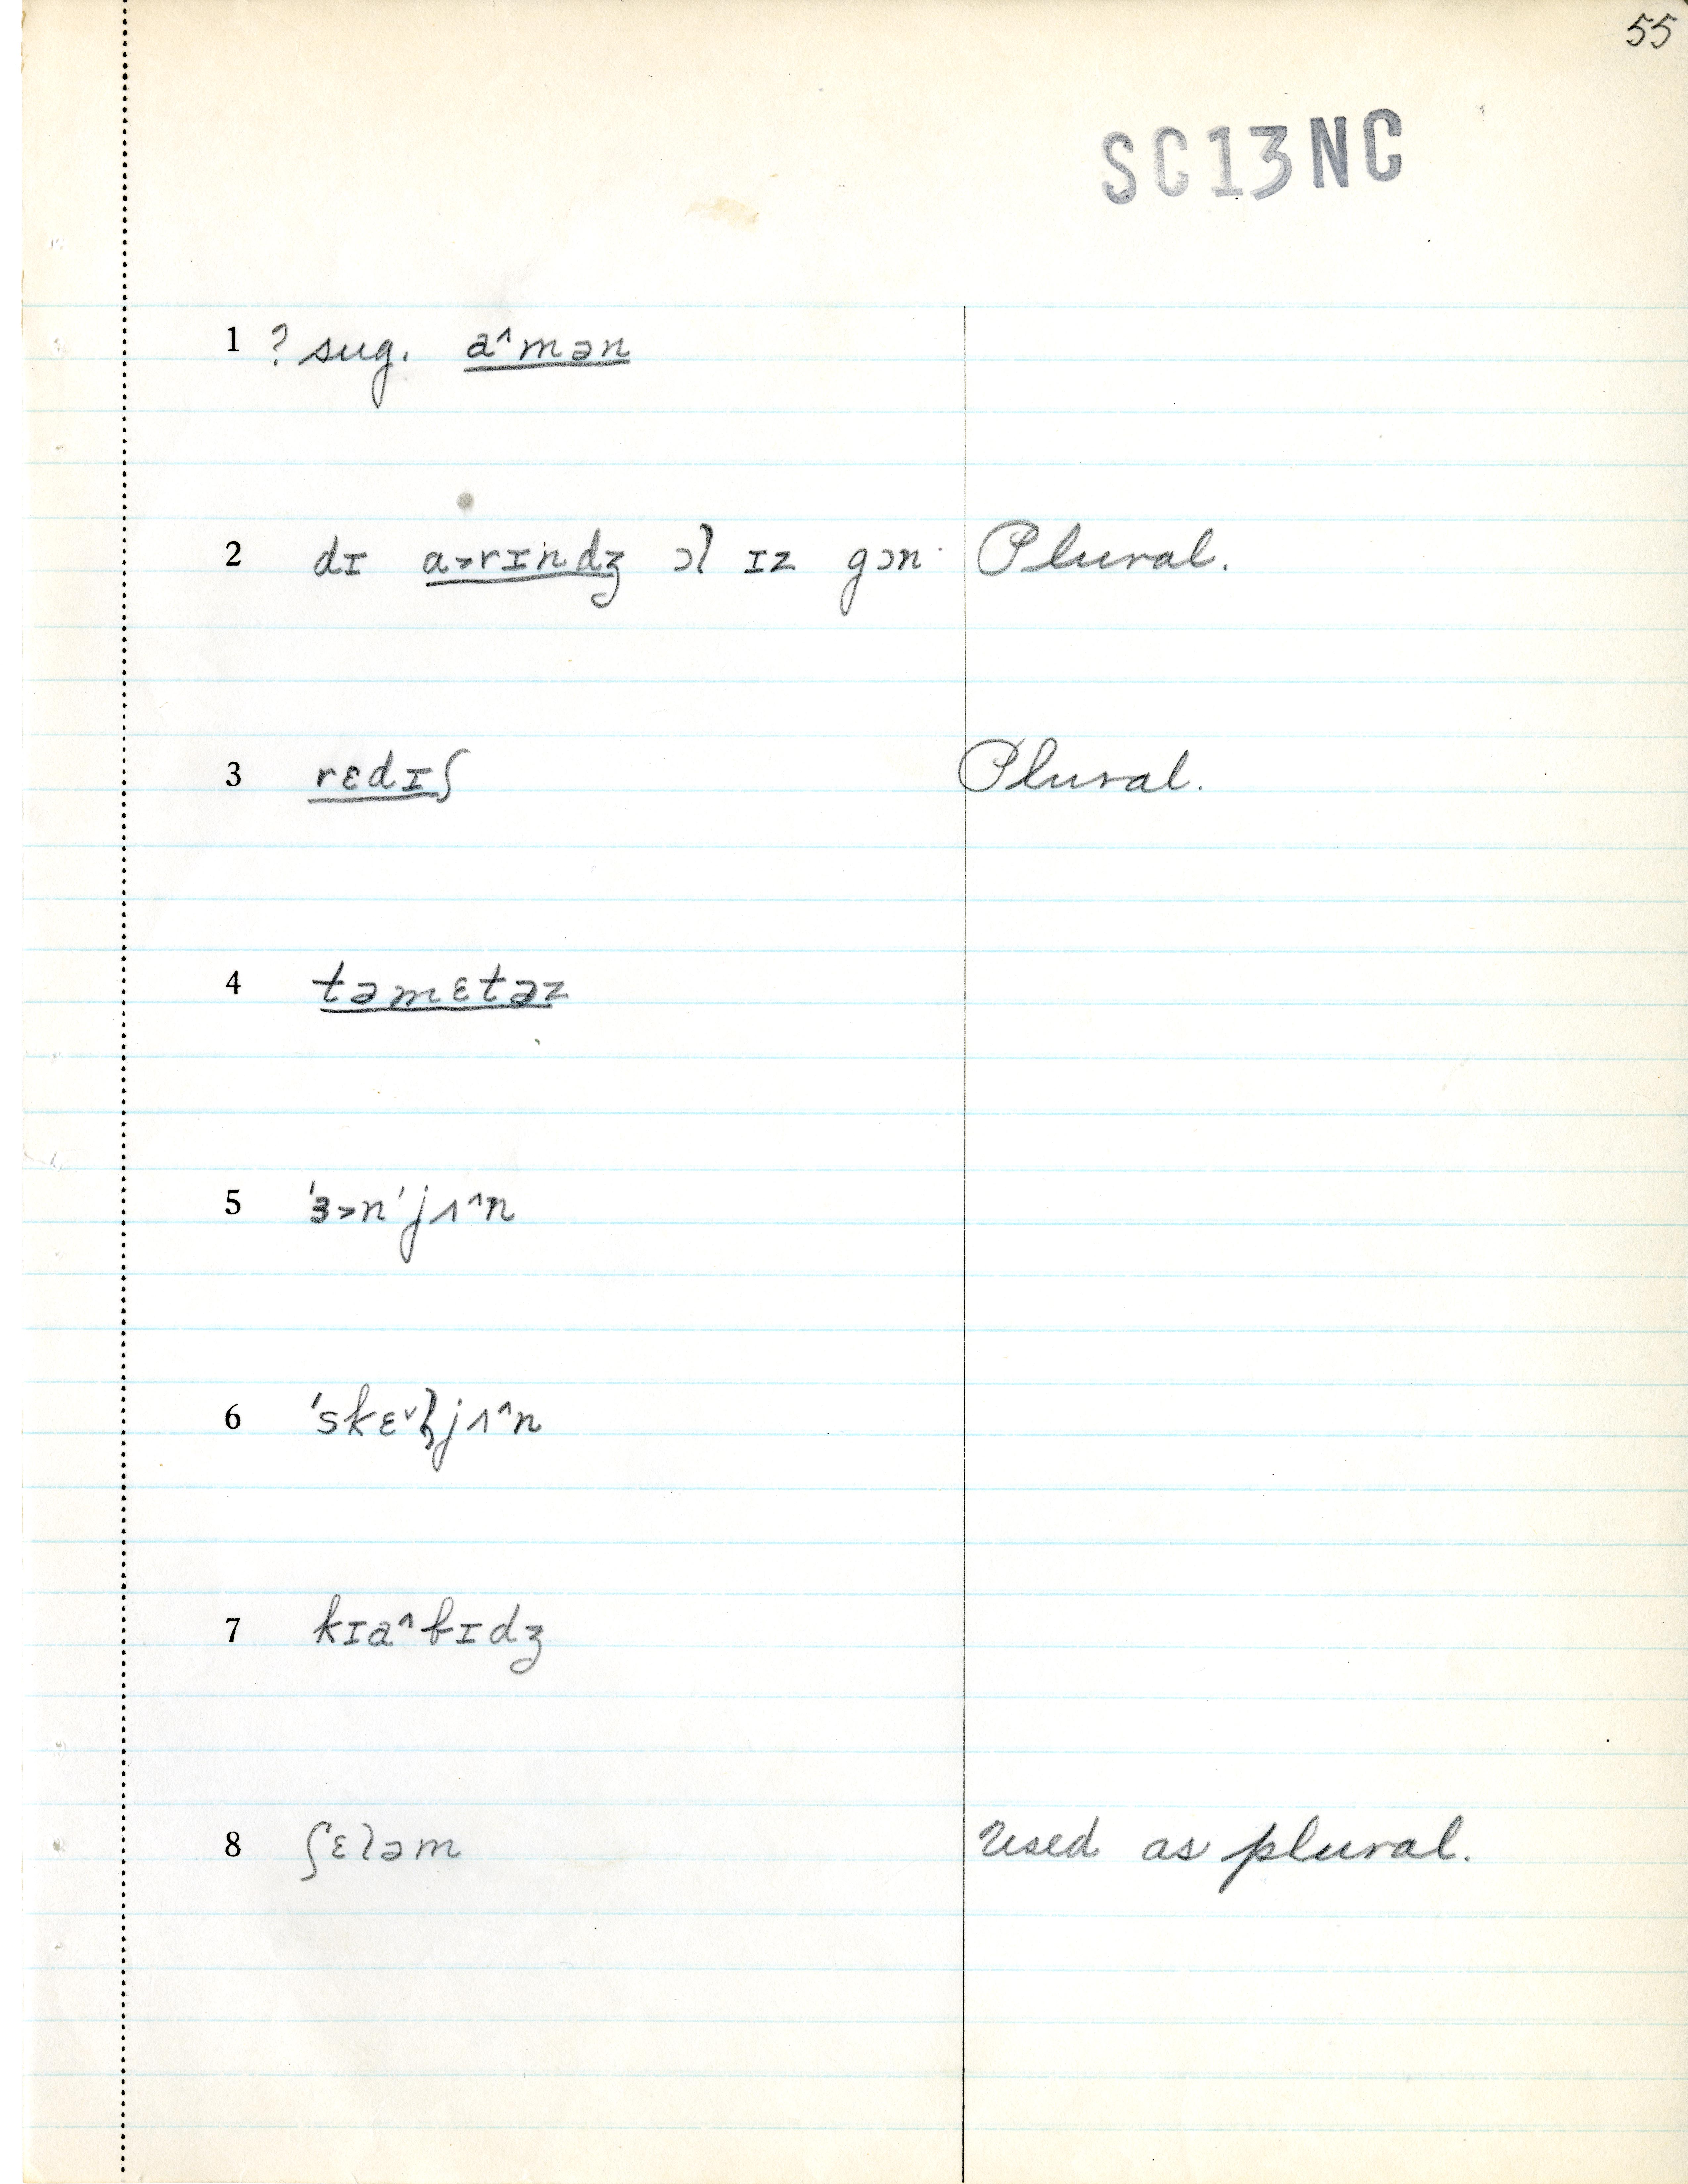 55
SC13NC
1 ? sug. a^mən
2 dɪ a˃rɪndʒ ɔl ɪz gɔn· Plural.
3 rɛdɪʃ Plural.
4 təmɛtəz
5 'ɜ˃n'jʌ^n
6 'skɛ˅ljʌ^n
7 kɪa^bɪdʒ
8 ʃɛləm Used as plural.